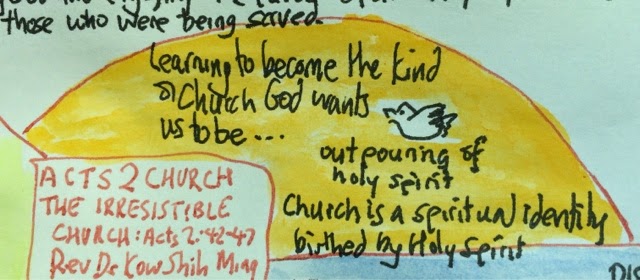 those who were being saved.
Learning to become the kind
of Church God wants
us to be...
outpouring of
holy spirit
Church is a spiritual identity
birthed by Holy Spirit
ACTS 2 CHURCH
THE IRRESISTIBLE
CHURCH: Acts 2:42-47
Rev Dr Kow Shih Ming